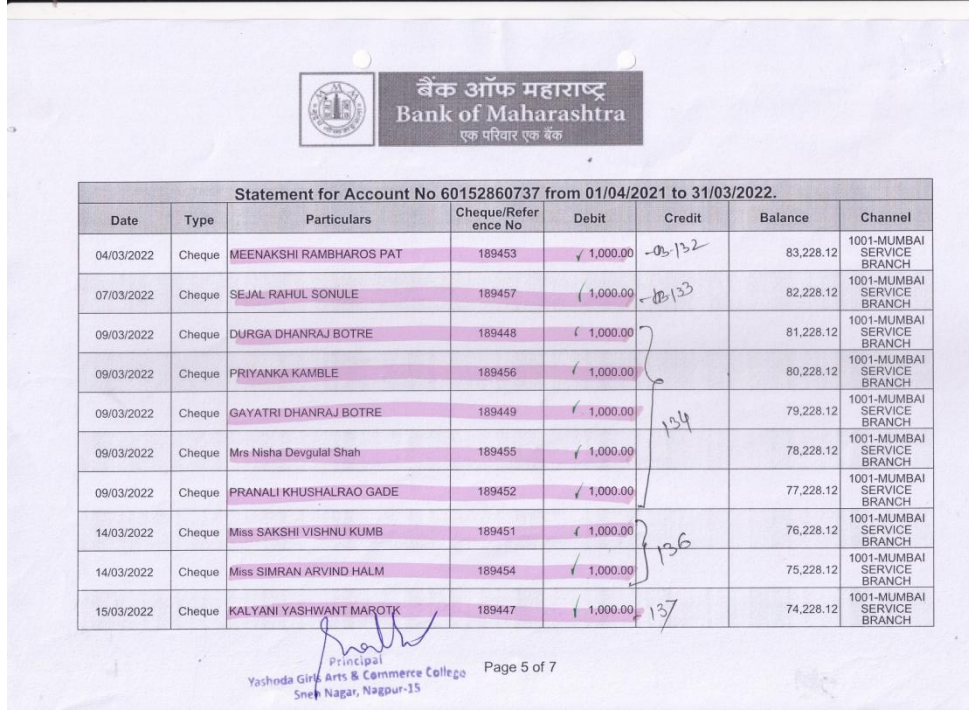 बैंक ऑफ महाराष्ट्र
Bank of Maharashtra
एक परिवार एक बैंक
Statement for Account No 60152860737 from 01/04/2021 to 31/03/2022.
Date Type Particulars Cheque/Reference No Debit Credit Balance Channel
04/03/2022 Cheque MEENAKSHI RAMBHAROS PAT 189453 1,000.00 83,228.12 1001-MUMBAI SERVICE BRANCH
07/03/2022 Cheque SEJAL RAHUL SONULE 189457 1,000.00 82,228.12 1001-MUMBAI SERVICE BRANCH
09/03/2022 Cheque DURGA DHANRAJ BOTRE 189448 1,000.00 81,228.12 1001-MUMBAI SERVICE BRANCH
09/03/2022 Cheque PRIYANKA KAMBLE 189456 1,000.00 80,228.12 1001-MUMBAI SERVICE BRANCH
09/03/2022 Cheque GAYATRI DHANRAJ BOTRE 189449 1,000.00 79,228.12 1001-MUMBAI SERVICE BRANCH
134
09/03/2022 Cheque Mrs Nisha Devgulal Shah 189455 1,000.00 78,228.12 1001-MUMBAI SERVICE BRANCH
09/03/2022 Cheque PRANALI KHUSHALRAO GADE 189452 1,000.00 77,228.12 1001-MUMBAI SERVICE BRANCH
14/03/2022 Cheque Miss SAKSHI VISHNU KUMB 189451 1,000.00 76,228.12 1001-MUMBAI SERVICE BRANCH
136
14/03/2022 Cheque Miss SIMRAN ARVIND HALM 189454 1,000.00 75,228.12 1001-MUMBAI SERVICE BRANCH
15/03/2022 Cheque KALYANI YASHWANT MAROTK 189447 1,000.00 137 74,228.12 1001-MUMBAI SERVICE BRANCH
Principal
Yashoda Girls Arts & Commerce College
Sneh Nagar, Nagpur-15
Page 5 of 7